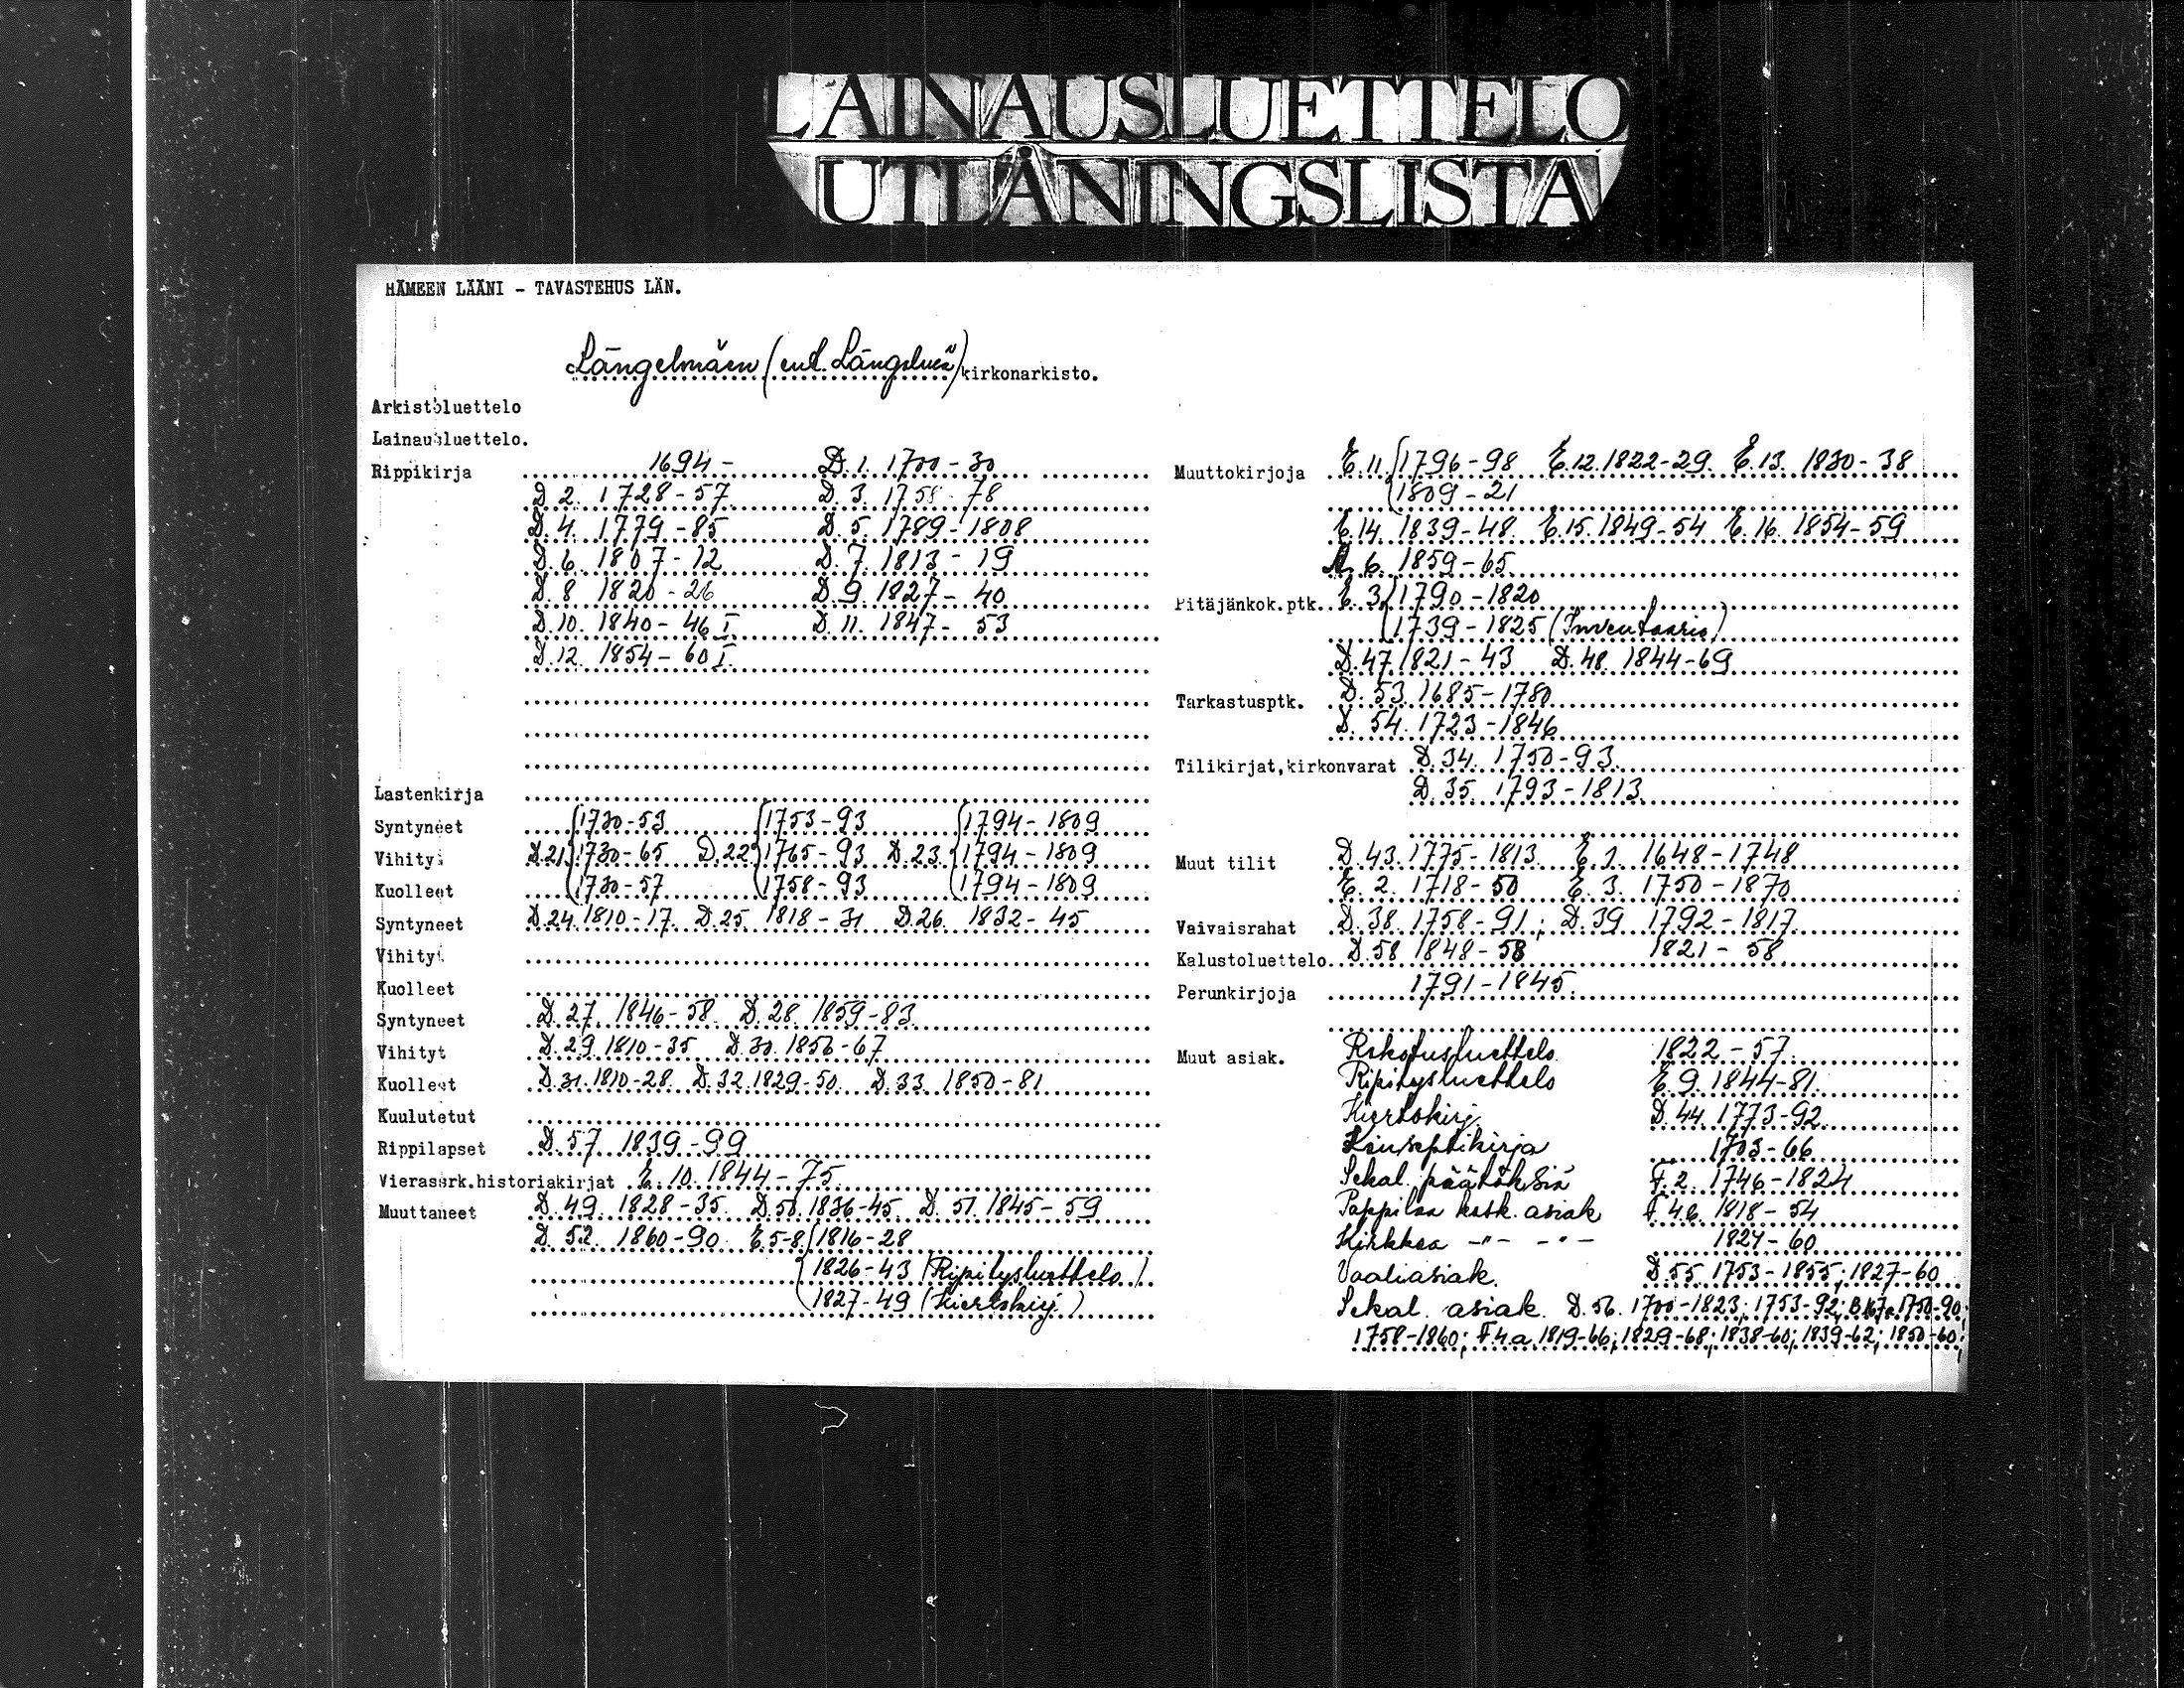 LAINAUSLUETTELO
UTLÅNINGSLISTA
HÄMEEN LÄÄNI - TAVASTEHUS LÄN.
Längelmäen (ent. Längelmä) kirkonarkisto.
Arkistoluettelo
Lainausluettelo.
Rippikirja 1694- D.1. 1700-30
D 2. 1728-57. D. 3. 1758-78
D.4. 1779-85 D.5. 1789-1808
D.6. 1807-12 D.7. 1813-19
D.8 1820-26 D.9. 1827-40
D.10. 1840-46 I D.11. 1847-53
D.12. 1854-60 I.
Lastenkirja
Syntyneet 1730-53 1753-93 1794-1809
Vihityt D.21. 1730-65 D.22. 1765-93 D.23. 1794-1809
Kuolleet 1730-57 1758-93 1794-1809
Syntyneet D.24. 1810-17. D.25. 1818-31 D.26. 1832-45
Vihityt
Kuolleet
Syntyneet D.27. 1846-58. D.28. 1859-83.
Vihityt D.29. 1810-35 D.30. 1856-67
Kuolleet D.31. 1810-28. D.32. 1829-50. D.33. 1850-81
Kuulutetut
Rippilapset D.57. 1839-99
Vierassrk.historiakirjat E.10. 1844-75.
Muuttaneet D.49. 1828-35. D.50. 1836-45. D.51. 1845-59
D.52. 1860-90. E.5-8. 1816-28
1826-43 (Ripitysluettelo.)
1827-49 (Kiertokirj.)
Muuttokirjoja E.11. 1796-98 E.12. 1822-29. E.13. 1830-38
1809-21
E.14. 1839-48. E.15. 1849-54 E.16. 1854-59
A.6. 1859-65.
Pitäjänkok.ptk. E.3. 1790-1820
1739-1825 (Inventaario)
D.47. 1821-43 D.48. 1844-69
Tarkastusptk. D.53. 1685-1780
D.54. 1723-1846
Tilikirjat,kirkonvarat D.34. 1750-93.
D.35. 1793-1813.
Muut tilit D.43. 1775-1813. E.1. 1648-1748
E.2. 1718-50 E.3. 1750-1870
Vaivaisrahat D.38. 1758-91; D.39 1792-1817.
Kalustoluettelo. D.58 1848-58 1821-58
Perunkirjoja 1791-1845.
Muut asiak. Rokotusluettelo 1822-57.
Ripitysluettelo E.9. 1844-81.
Kiertokirj. D.44. 1773-92.
Konseptikirja 1703-66
Sekal. päätöksiä F.2. 1746-1824
Pappilaa kosk. asiak F.4.b. 1818-54
Kirkkoa -"- -"- 1824-60
Vaaliasiak. D.55. 1753-1855; 1827-60
Sekal. asiak. D.56. 1700-1823; 1753-92; 1750-90;
1758-1860; F.4.a. 1819-66; 1829-68; 1838-60; 1839-62; 1850-60;